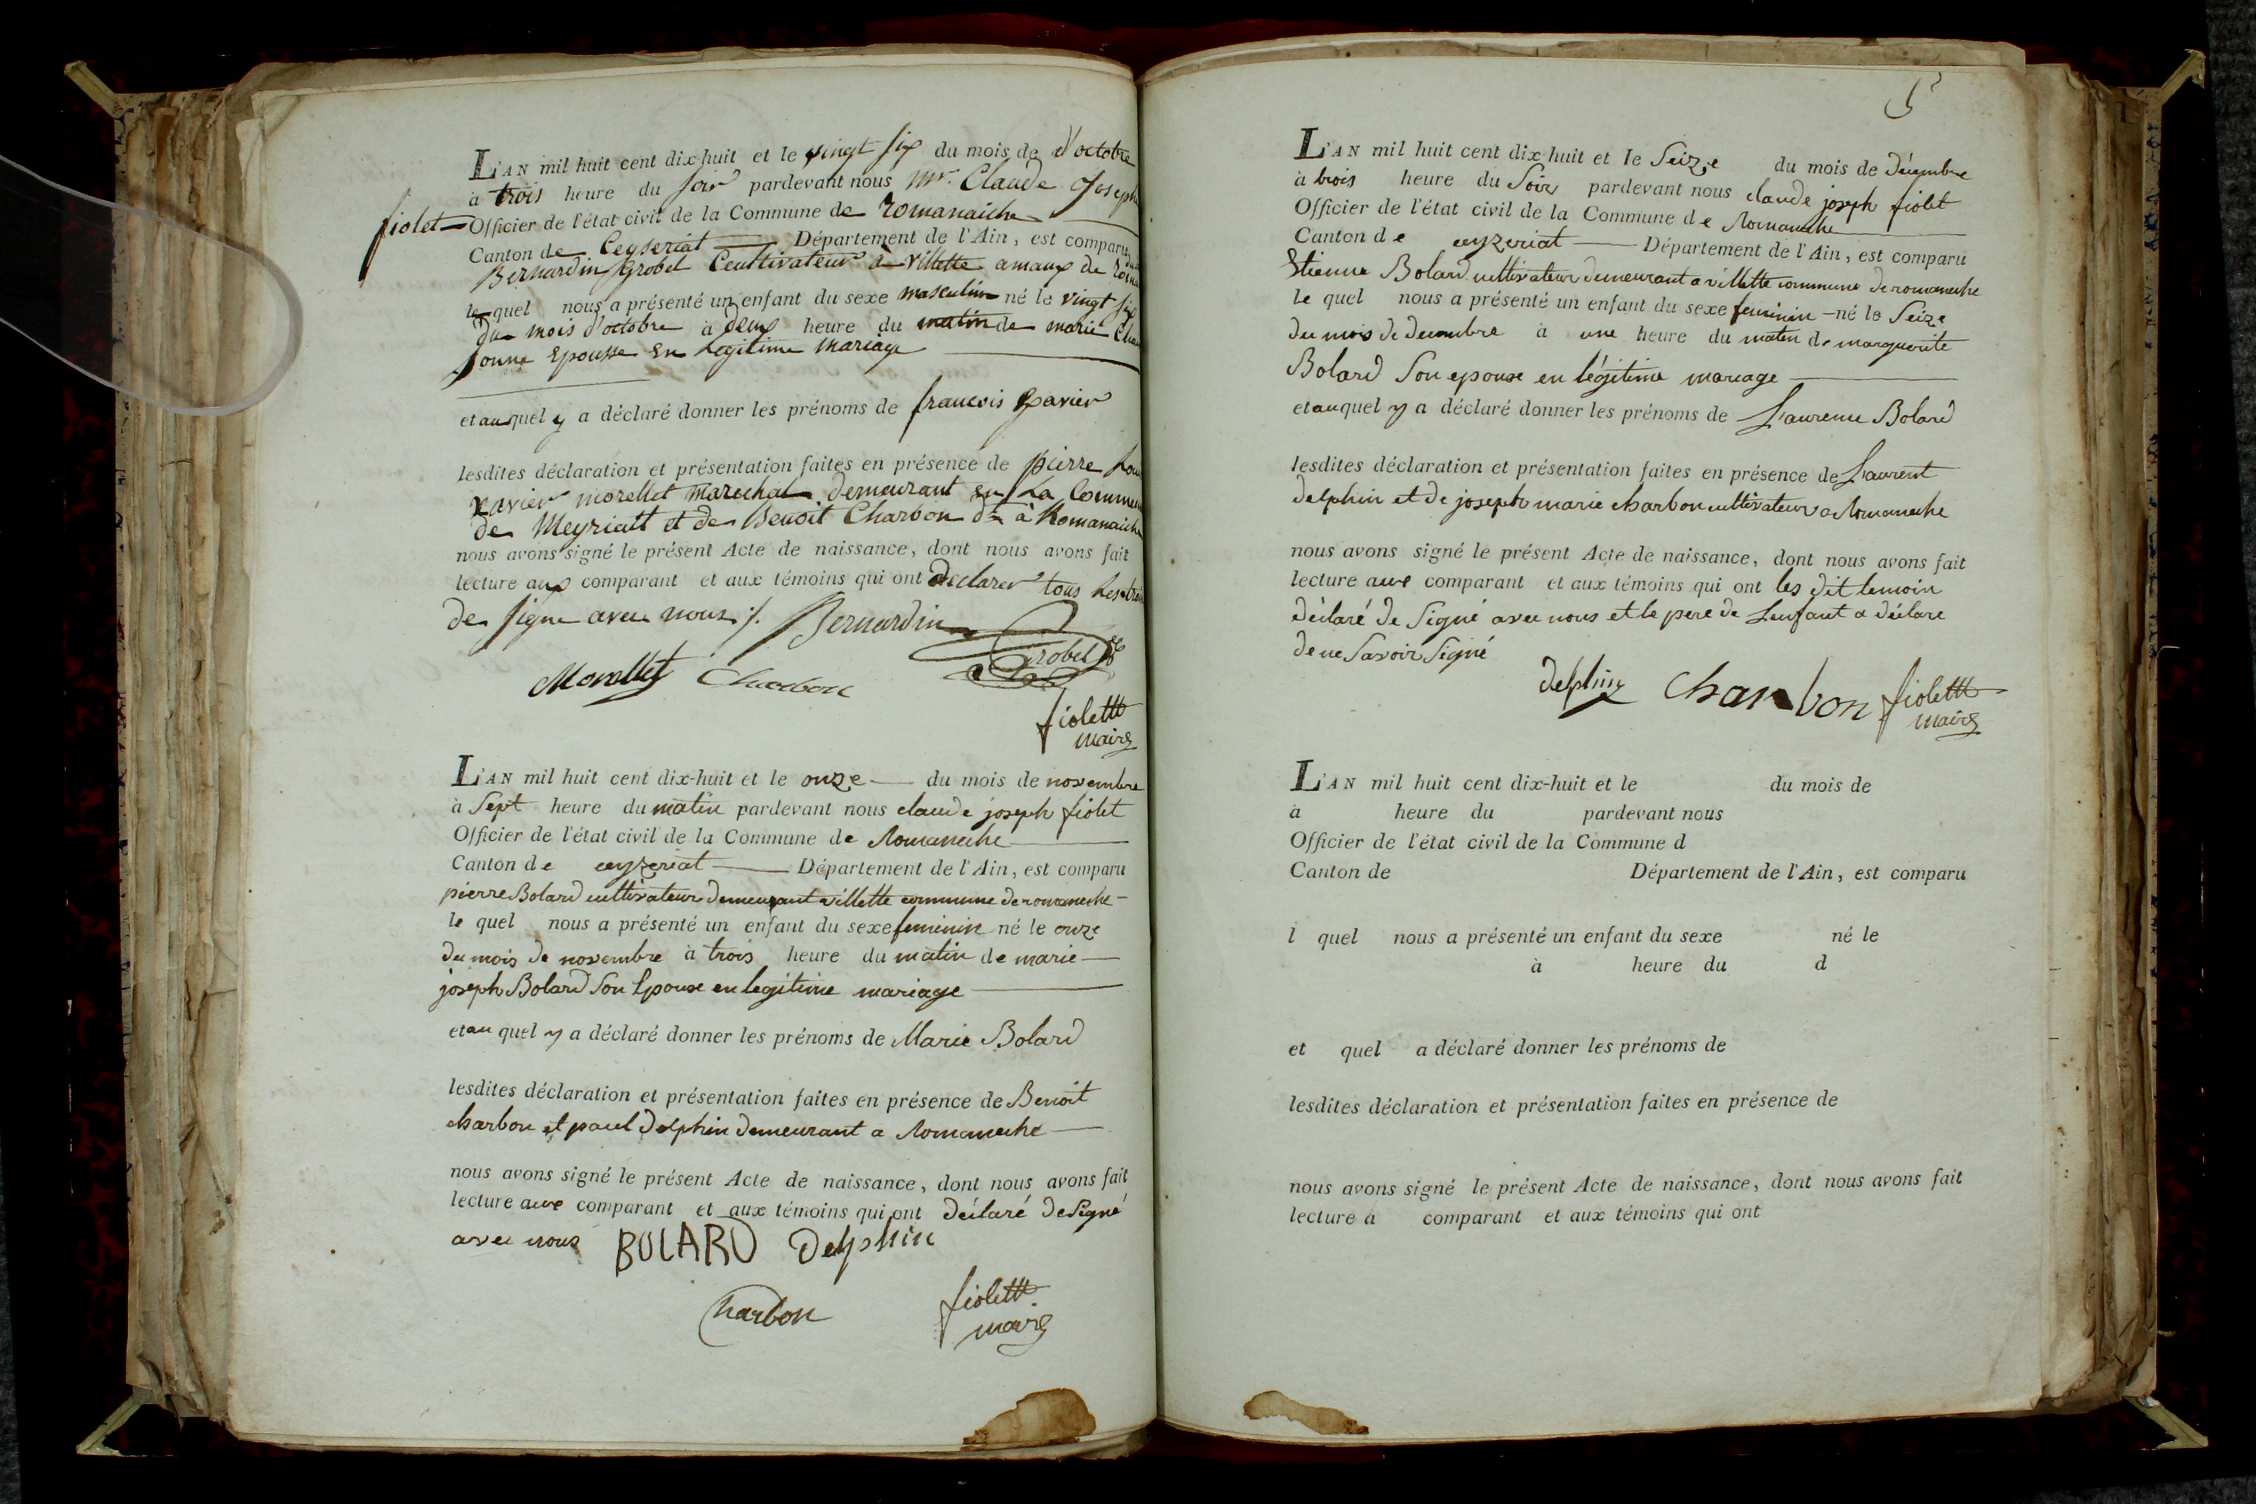 L'AN mil huit cent dix-huit et le vingt six du mois de d'octobre
à trois heure du soir pardevant nous Mr. Claude Joseph
fiolet Officier de l'état civil de la Commune de Romanaiche
Canton de Ceyseriat Département de l'Ain, est comparu
Bernardin Grobel Ceultivateur à Villette amaux de
le quel nous a présenté un enfant du sexe masculin né le vingt six
du mois d'octobre à deux heure du matin de marie
sonne Epousse en Legitime Mariage
et au quel y a déclaré donner les prénoms de francois Xavier
lesdites déclaration et présentation faites en présence de pierre
Xavier morellet marechal demeurant en La Commune
de Meyriatt et de Benoit Charbon dt à Romanaiche
nous avons signé le présent Acte de naissance, dont nous avons fait
lecture aux comparant et aux témoins qui ont declarer tous Les
de signe avec nous ∕. Bernardin
Grobel
Morellet Charbon
fiolettt
maire
L'AN mil huit cent dix-huit et le onze du mois de novembre
à Sept heure du matin pardevant nous claude joseph fiolet
Officier de l'état civil de la Commune de Romaneche
Canton de ceyzeriat Département de l'Ain, est comparu
pierre Bolard cultivateur demeurant a villette commune de romaneche
le quel nous a présenté un enfant du sexe feminin né le onze
du mois de novembre à trois heure du matin de marie
joseph Bolard Son Epouse en legitime mariage
et au quel y a déclaré donner les prénoms de Marie Bolard
lesdites déclaration et présentation faites en présence de Benoit
charbon et paul delphin demeurant a Romaneche
nous avons signé le présent Acte de naissance, dont nous avons fait
lecture aux comparant et aux témoins qui ont déclaré de Signé
avec nous BOLARD delphin
Charbon fiolettt
maire
L'AN mil huit cent dix-huit et le Seize du mois de décembre
à trois heure du Soir pardevant nous claude joseph fiolet
Officier de l'état civil de la Commune de Romaneche
Canton de ceyzeriat Département de l'Ain, est comparu
Etienne Bolard cultivateur demeurant a villette commune de romaneche
le quel nous a présenté un enfant du sexe feminin né le Seize
du mois de decembre à une heure du matin de marguerite
Bolard Son epouse en légitime mariage
et au quel y a déclaré donner les prénoms de Laurence Bolard
lesdites déclaration et présentation faites en présence de Laurent
delphin et de joseph marie charbon cultivateur a Romaneche
nous avons signé le présent Acte de naissance, dont nous avons fait
lecture aux comparant et aux témoins qui ont les dit temoin
déclaré de Signé avec nous et le pere de Lenfant a déclare
de ne Savoir Signé
delphin Charbon fiolettt
maire
L'AN mil huit cent dix-huit et le du mois de
à heure du pardevant nous
Officier de l'état civil de la Commune d
Canton de Département de l'Ain, est comparu
l quel nous a présenté un enfant du sexe né le
à heure du d
et quel a déclaré donner les prénoms de
lesdites déclaration et présentation faites en présence de
nous avons signé le présent Acte de naissance, dont nous avons fait
lecture à comparant et aux témoins qui ont